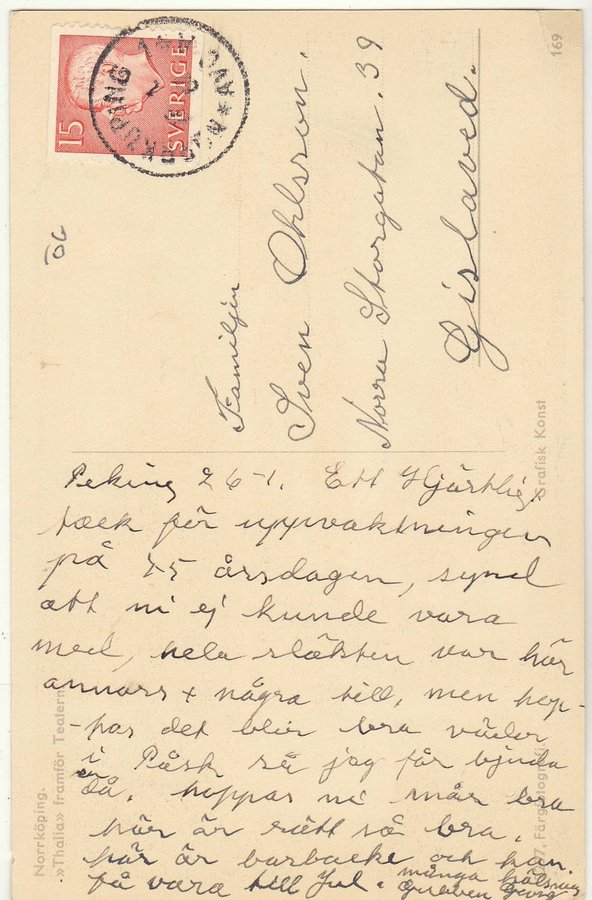 15
SVERIGE
169
Familjen
Sven Ohlsson.
Norra Storgatan. 39
Gislaved.
Grafisk Konst
Peking 26-1. Ett Hjärtligt
tack för uppvaktningen
på 75 årsdagen, synd
att ni ej kunde vara
med, hela släkten var här
annars + några till, men hop-
-pas det blir bra väder
i Påsk så jag får bjuda
då. hoppas ni mår bra
här är rätt så bra.
här är barbacke och kan
få vara till Jul. många hälsn
Georg
Norrköping.
»Thalia» framför Teatern
Färgfotografi